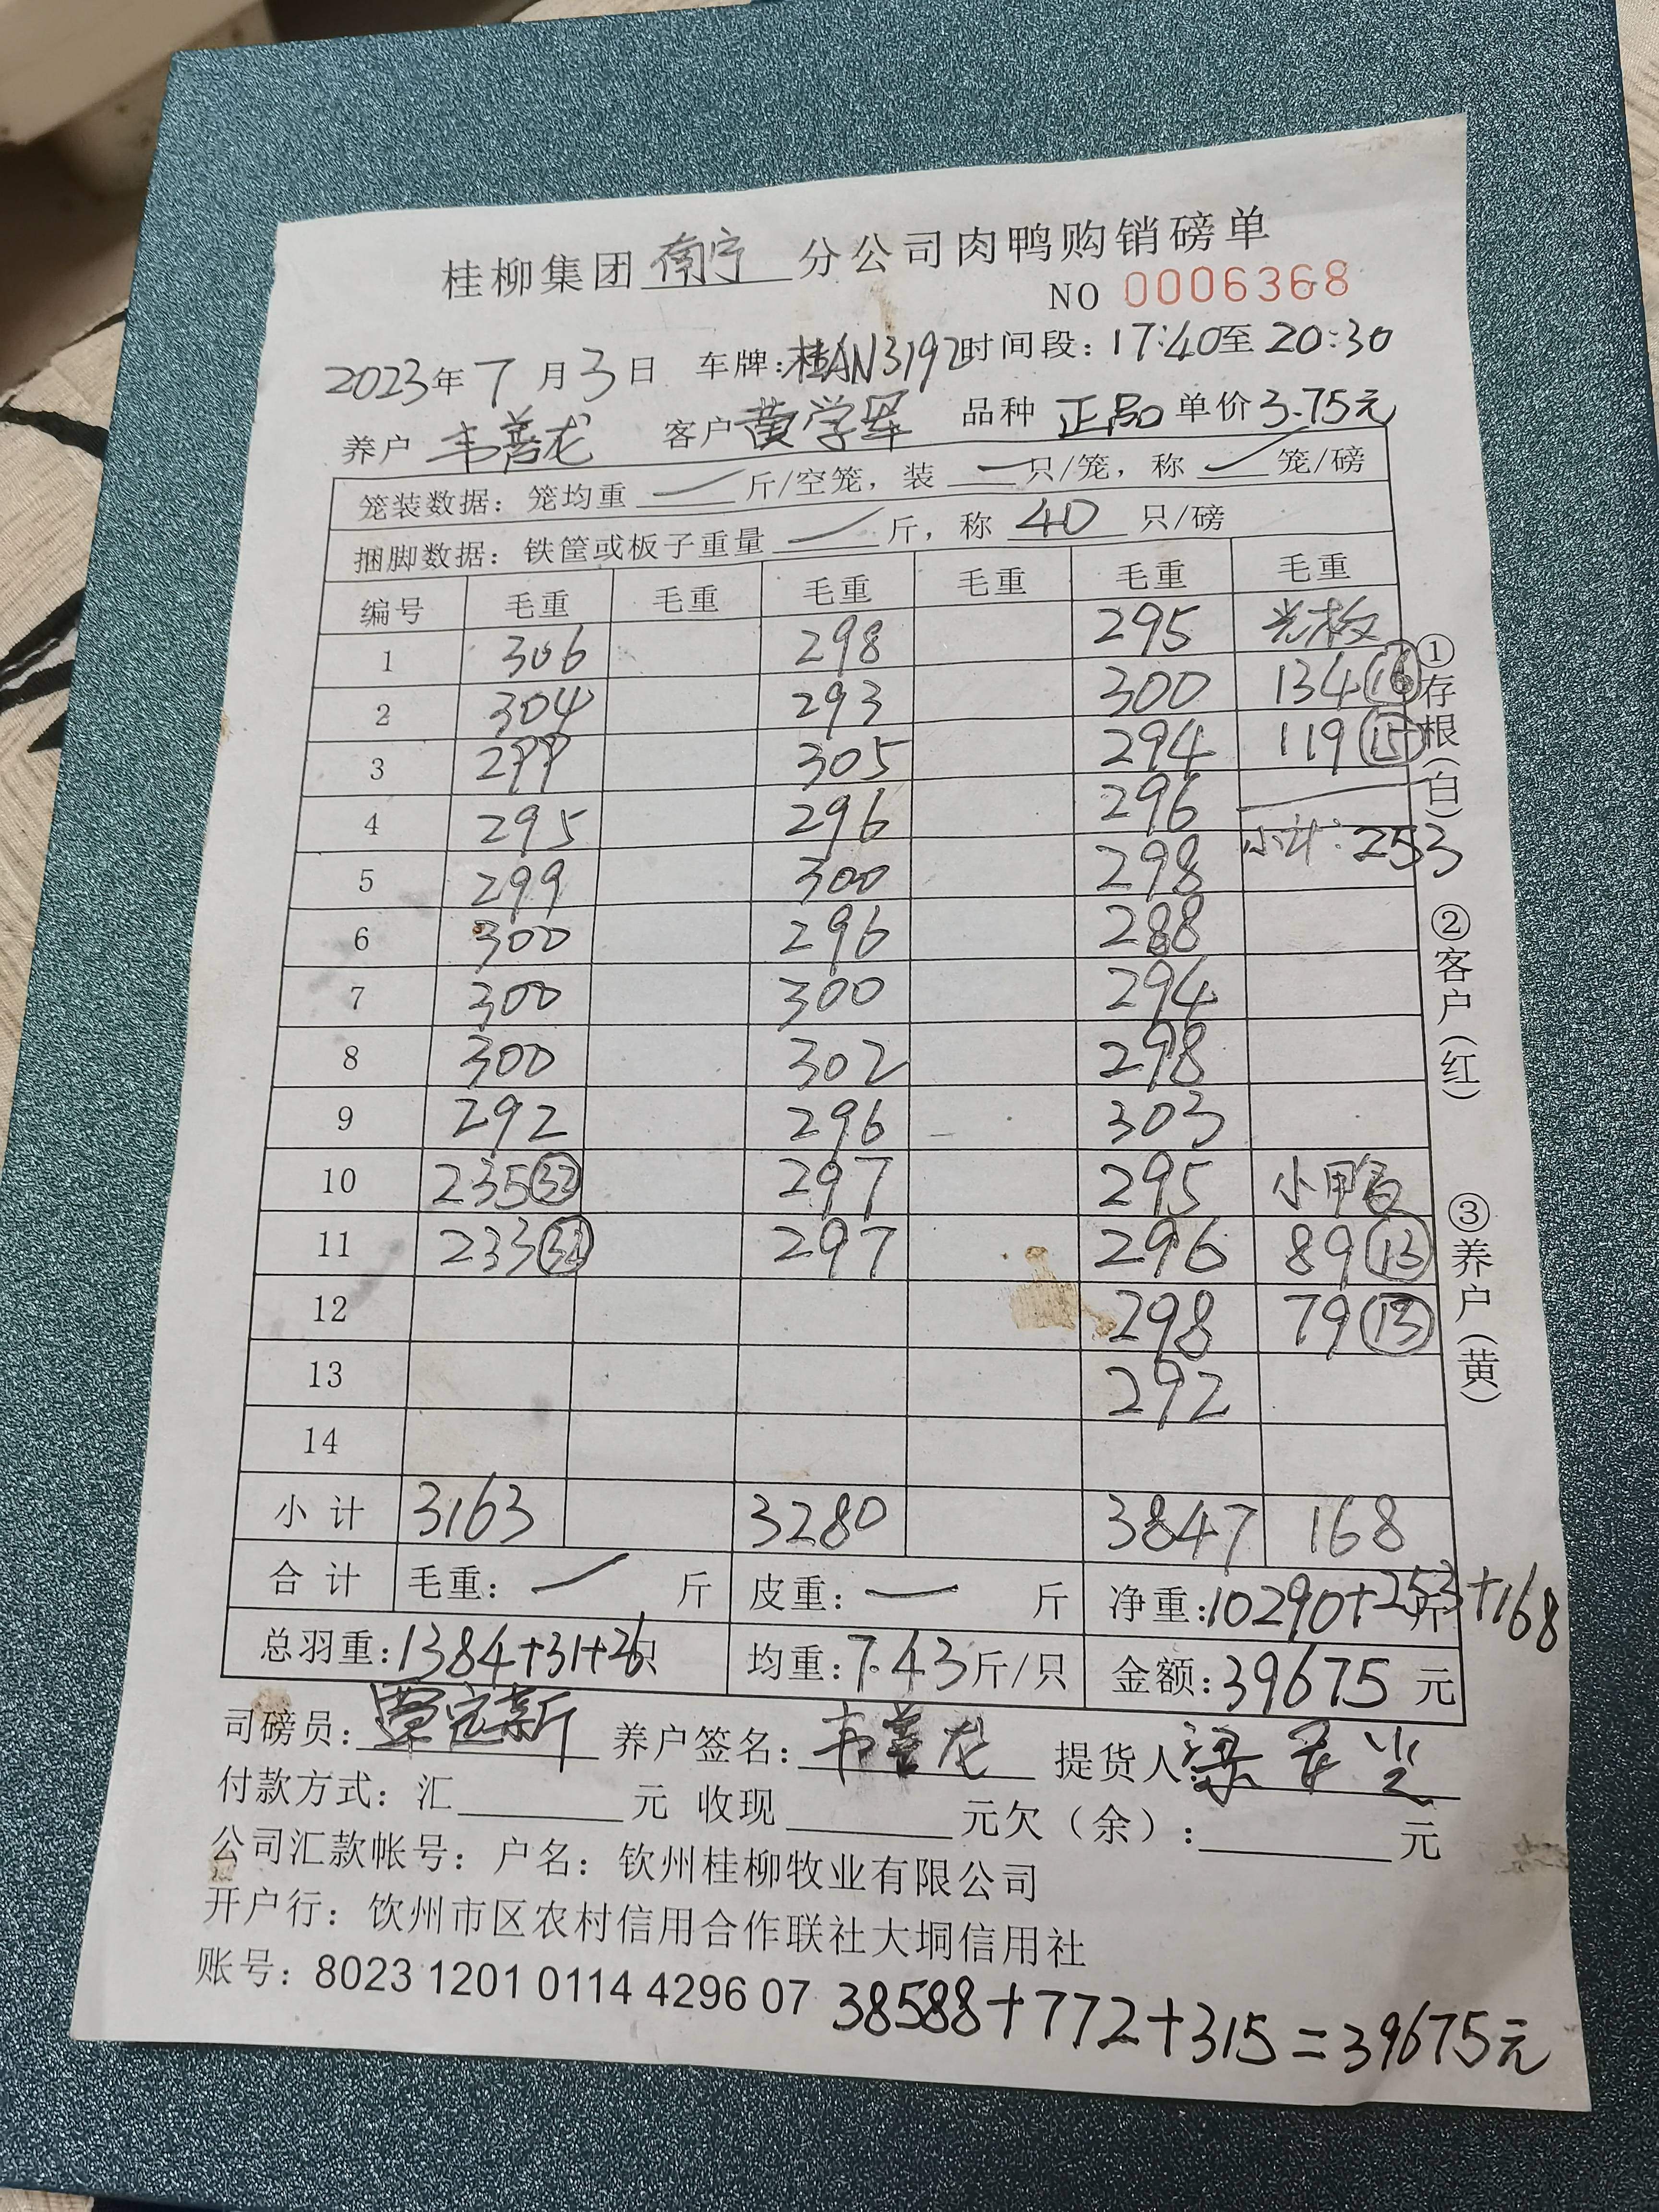 桂柳集团 南宁 分公司肉鸭购销磅单
NO 0006368
2023年7月3日 车牌:桂AN3192 时间段:17:40至20:30
养户 韦善龙 客户 黄学军 品种 正品 单价 3.75元
笼装数据:笼均重 — 斤/空笼,装 — 只/笼,称 — 笼/磅
捆脚数据:铁筐或板子重量 — 斤,称 40 只/磅
编号 毛重 毛重 毛重 毛重 毛重 毛重
1 306 298 295 光板
2 304 293 300 134 16
3 299 305 294 119 15
4 295 296 296
5 299 300 298 小计:253
6 300 296 288
7 300 300 294
8 300 302 298
9 292 296 303
10 235 32 297 295 小鸭
11 233 32 297 296 89 13
12 298 79 13
13 292
14
小计 3163 3280 3847 168
合计 毛重:— 斤 皮重:— 斤 净重:10290+253斤+168
总羽重:1384+31+26只 均重:7.43斤/只 金额:39675 元
司磅员:覃 新 养户签名:韦善龙 提货人:梁
付款方式:汇 元 收现 元欠(余): 元
公司汇款帐号:户名:钦州桂柳牧业有限公司
开户行:饮州市区农村信用合作联社大垌信用社
账号:8023 1201 0114 4296 07 38588+772+315=39675元
①存根(白)
②客户(红)
③养户(黄)